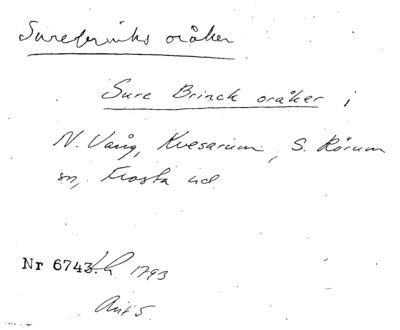 Surebrinks oråker
Sure Brinck oråker i
N. Vång, Kvesarum, S. Rörum
sn, Frosta hd
Nr 6743. LR 1793
Avt 5